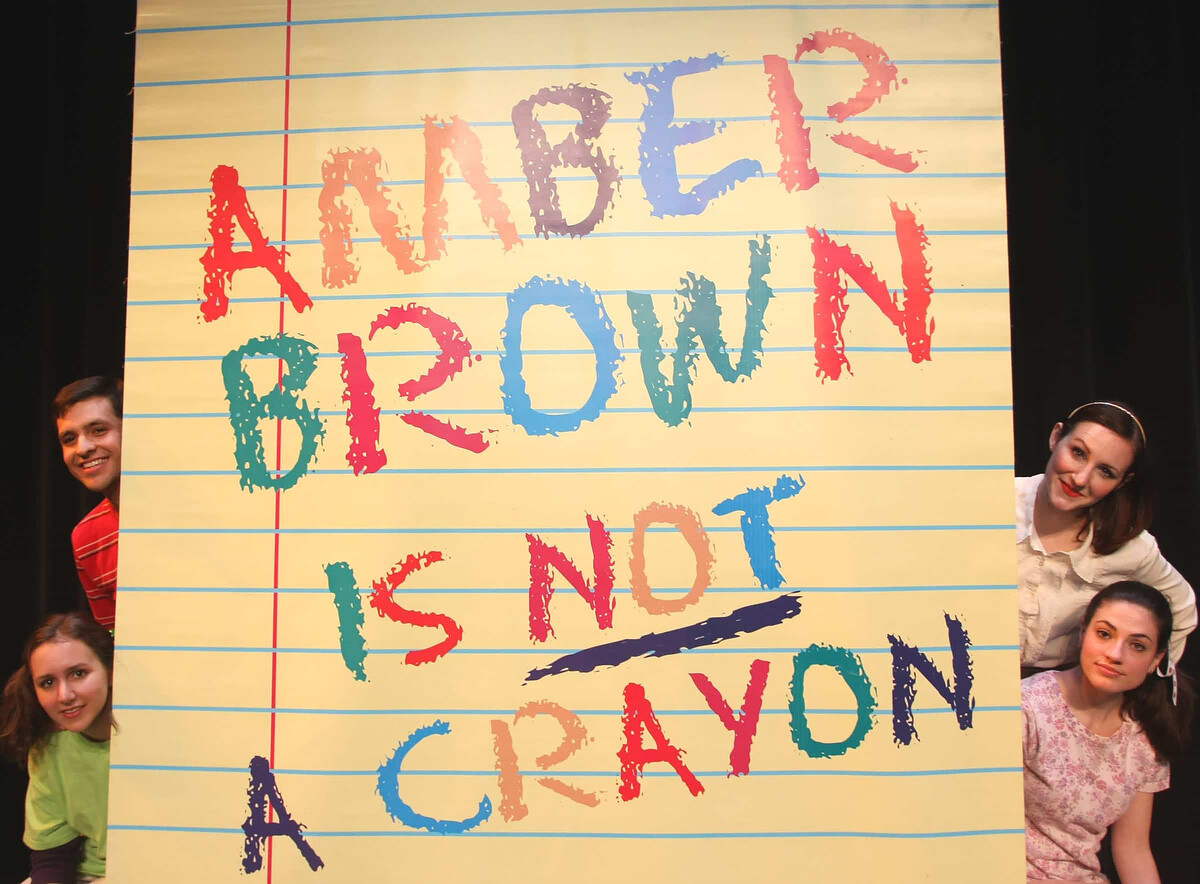 AMBER
BROWN
IS NOT
A CRAYON